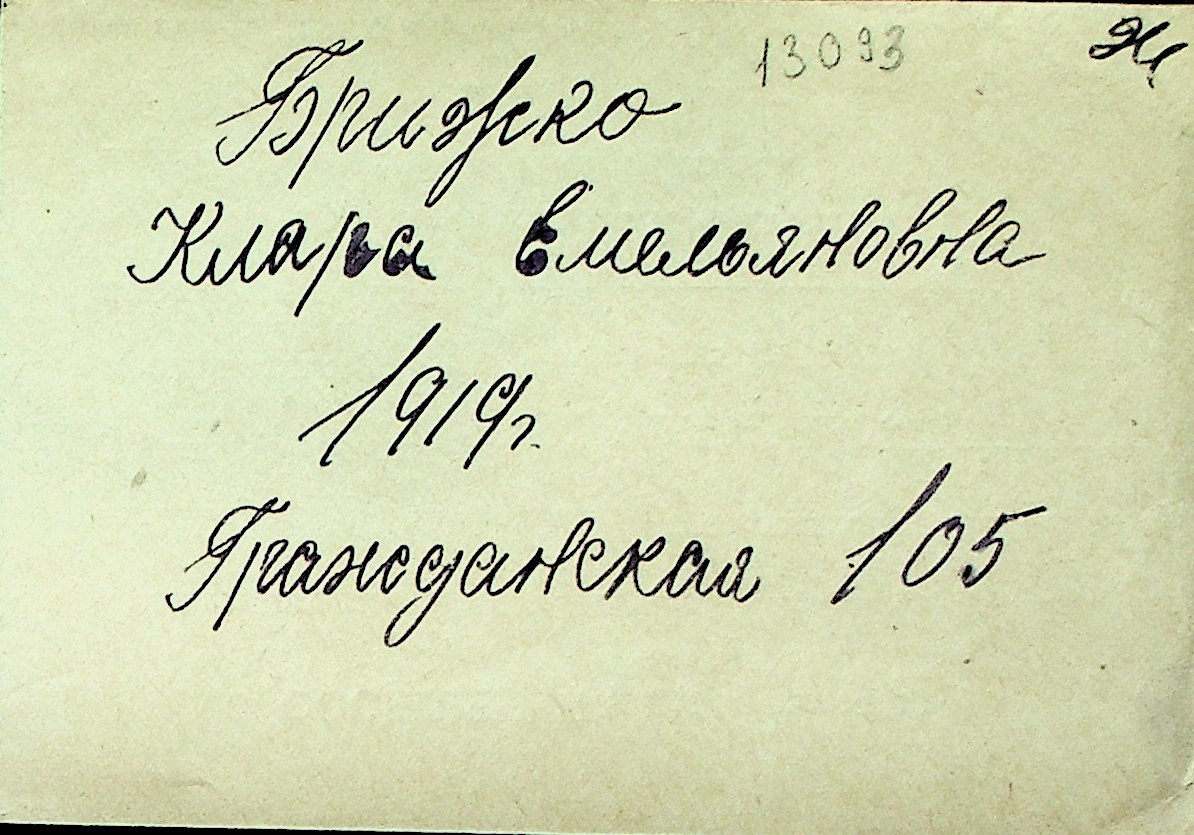 13093
Брижко
Клара Емельяновна
1919г.
Гражданская 105